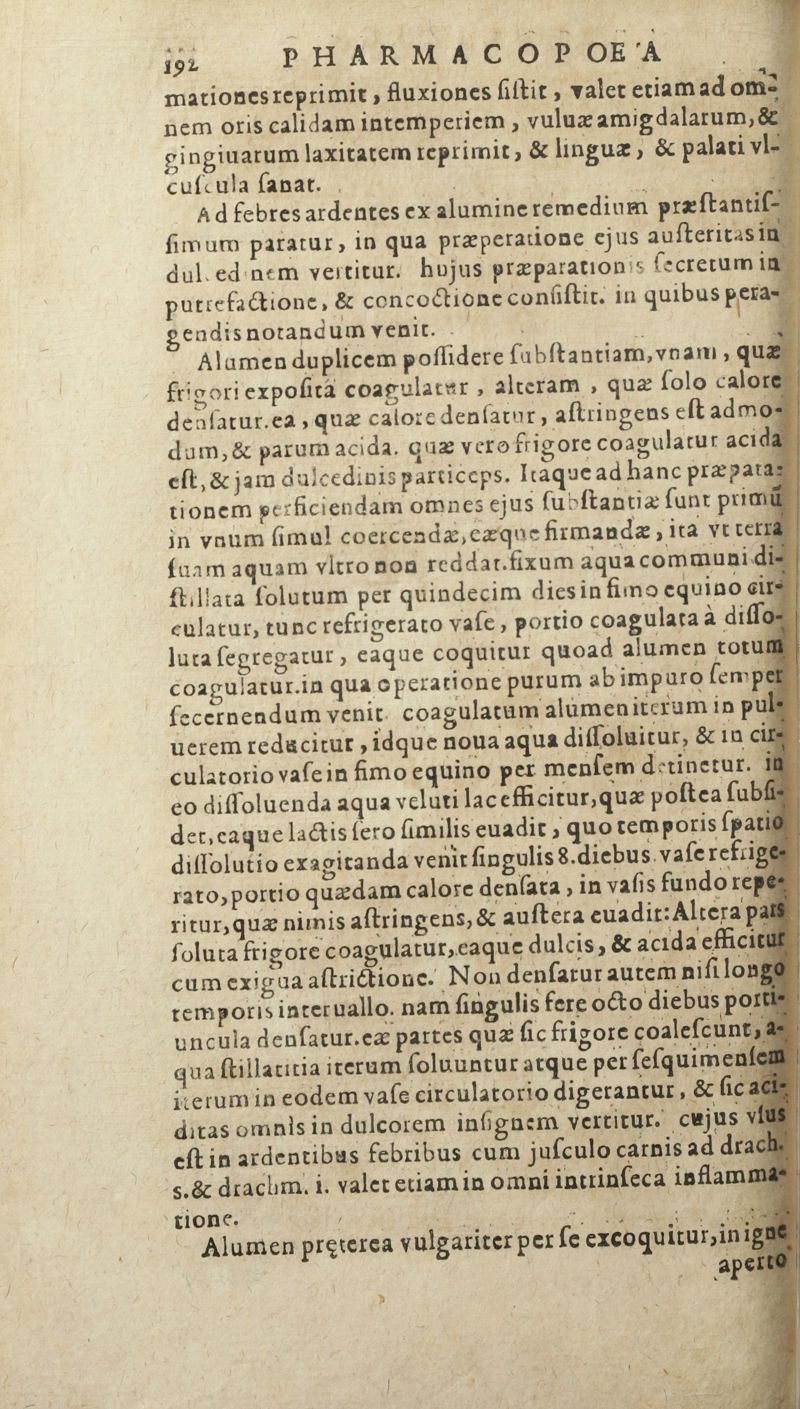 192 PHARMACOPOE'A
mationes reprimit, fluxiones ſiſtit, valet etiam ad om-
nem oris calidam intemperiem, vuluæ amigdalarum, &
gingiuarum laxitatem reprimit, & linguæ, & palati vl-
cuſcula ſanat.
Ad febres ardentes ex alumine remedium præſtantiſ-
ſimum paratur, in qua præperatione ejus auſteritas in
dulcedinem vertitur. hujus præparationis ſecretum in
putrefactione, & concoctione conſiſtit. in quibus pera-
gendis notandum venit.
Alumen duplicem poſſidere ſubſtantiam, vnam, quæ
frigori expoſita coagulatur, alteram, quæ ſolo calore
denſatur. ea, quæ calore denſatur, aſtringens eſt admo-
dum, & parum acida. quæ vero frigore coagulatur acida
eſt, & jam dulcedinis particeps. Itaque ad hanc præpara-
tionem perficiendam omnes ejus ſubſtantiæ ſunt primū
in vnum ſimul coercendæ, eæque firmandæ, ita vt terra
ſuam aquam vltro non reddat. fixum aqua communi di-
ſtillata ſolutum per quindecim dies in fimo equino cir-
culatur, tunc refrigerato vaſe, portio coagulata à diſſo-
luta ſegregatur, eaque coquitur quoad alumen totum
coagulatur. in qua operatione purum ab impuro ſemper
ſecernendum venit coagulatum alumen iterum in pul-
uerem reducitur, idque noua aqua diſſoluitur, & in cir-
culatorio vaſe in fimo equino per menſem detinetur. in
eo diſſoluenda aqua veluti lac efficitur, quæ poſtea ſubſi-
det, eaque lactis ſero ſimilis euadit, quo temporis ſpatio
diſſolutio exagitanda venit ſingulis 8. diebus. vaſe refrige-
rato, portio quædam calore denſata, in vaſis fundo repe-
ritur, quæ nimis aſtringens, & auſtera euadit: Altera pars
ſoluta frigore coagulatur, eaque dulcis, & acida efficitur
cum exigua aſtrictione. Non denſatur autem niſi longo
temporis interuallo. nam ſingulis fere octo diebus porti-
uncula denſatur. eæ partes quæ ſic frigore coaleſcunt, a-
qua ſtillatitia iterum ſoluuntur atque per ſeſquimenſem
iterum in eodem vaſe circulatorio digerantur, & ſic aci-
ditas omnis in dulcorem inſignem vertitur. cujus vſus
eſt in ardentibus febribus cum juſculo carnis ad drach.
s. & drachm. i. valet etiam in omni intrinſeca inflamma-
tione.
Alumen pręterea vulgariter per ſe excoquitur, in igne
aperto